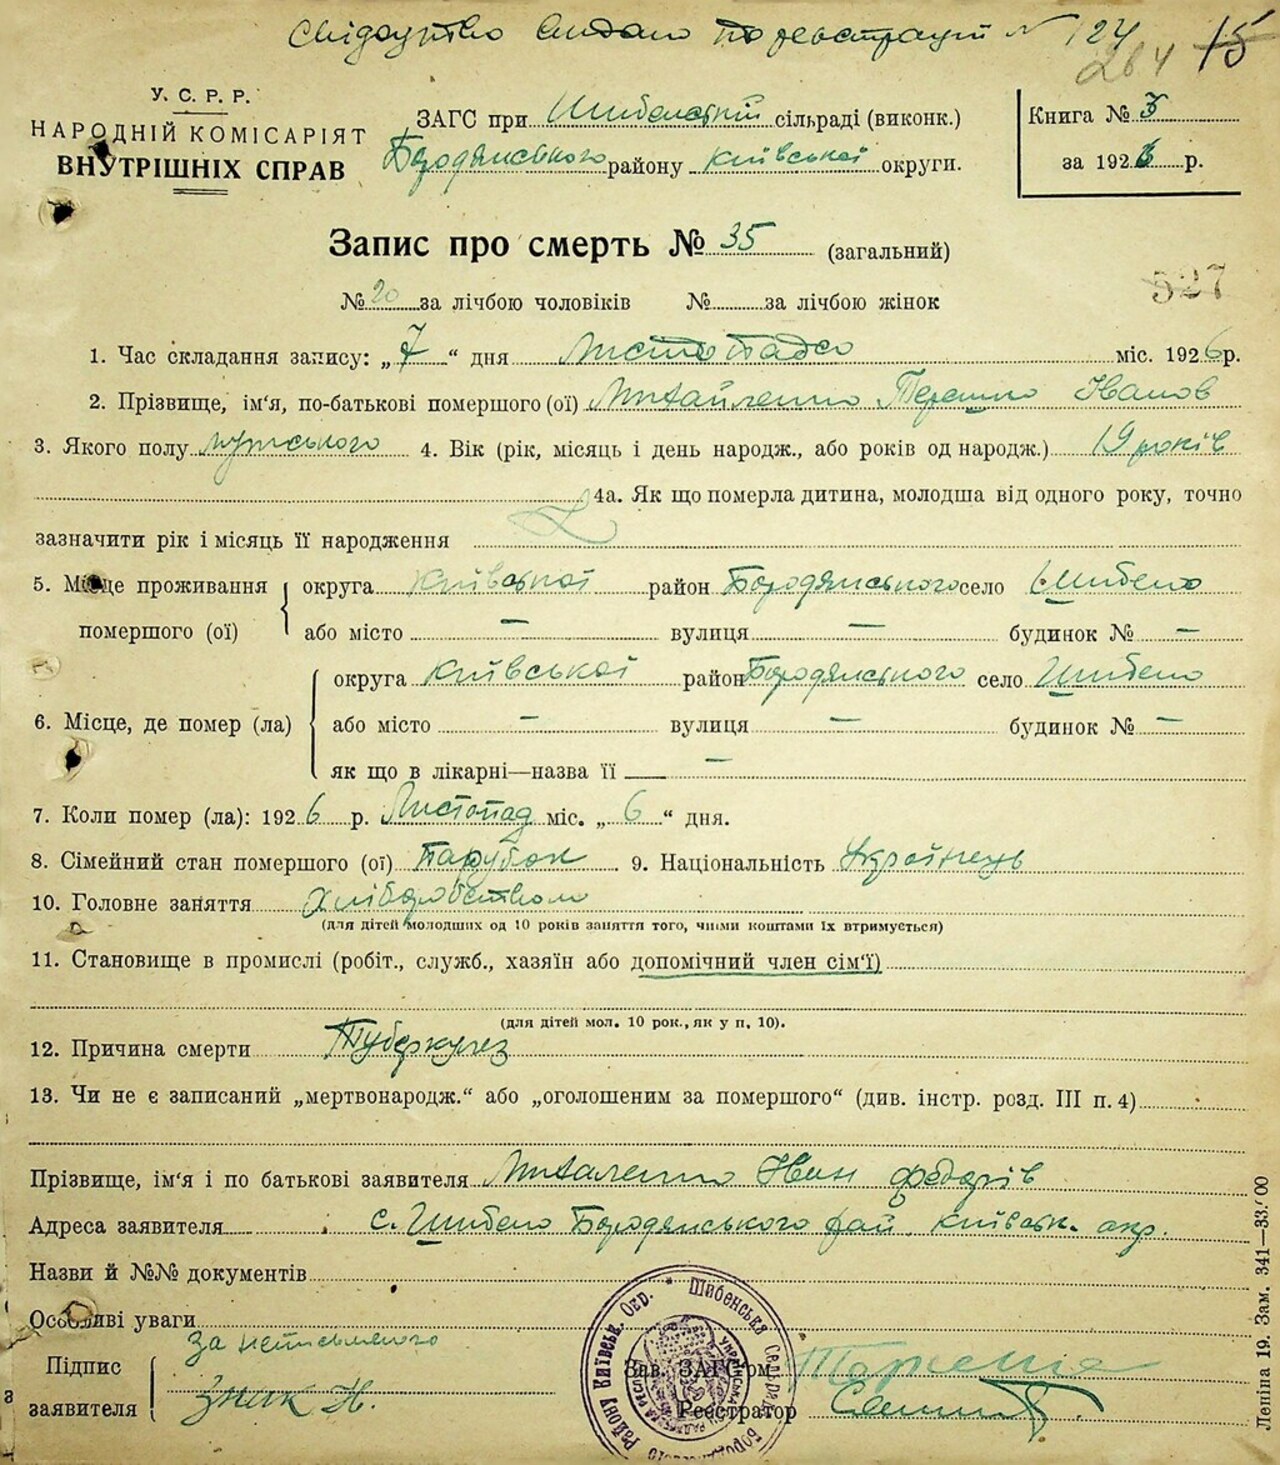 Свідоцтво видано по реєстрації № 124
264 15
У. С. Р. Р.
НАРОДНІЙ КОМІСАРІЯТ
ВНУТРІШНІХ СПРАВ
ЗАГС при Шибенській сільраді (виконк.)
Бородянського району Київської округи.
Книга № 3
за 1926 р.
Запис про смерть № 35 (загальний)
527
№ 20 за лічбою чоловіків № за лічбою жінок
1. Час складання запису: „7“ дня Листопадо міс. 1926 р.
2. Прізвище, ім'я, по-батькові помершого (ої) Михайленко Терешко Іванов
3. Якого полу мужського 4. Вік (рік, місяць і день народж., або років од народж.) 19 років
4а. Як що померла дитина, молодша від одного року, точно
зазначити рік і місяць її народження
5. Місце проживання помершого (ої) округа Київської район Бородянського село Шибено
або місто — вулиця — будинок № —
6. Місце, де помер (ла) округа Київської район Бородянського село Шибено
або місто — вулиця — будинок № —
як що в лікарні—назва її —
7. Коли помер (ла): 1926 р. Листопад міс. „6“ дня.
8. Сімейний стан помершого (ої) Парубок 9. Національність Українець
10. Головне заняття Хліборобством
(для дітей молодших од 10 років заняття того, чиїми коштами їх втримується)
11. Становище в промислі (робіт., служб., хазяїн або допомічний член сім'ї)
(для дітей мол. 10 рок., як у п. 10).
12. Причина смерти Туберкульоз
13. Чи не є записаний „мертвонародж.“ або „оголошеним за помершого“ (див. інстр. розд. III п. 4)
Прізвище, ім'я і по батькові заявителя Михаленко Іван Федорів
Адреса заявителя с. Шибено Бородянського рай. Київськ. окр.
Назви й №№ документів
Особливі уваги
Підпис заявителя За неписьмяного
Зник Н.
Зав. ЗАГС'ом
Реєстратор
Шибенська Сельрада Бородянського Району Київськ. Окр.
Леніна 19. Зам. 341—33.